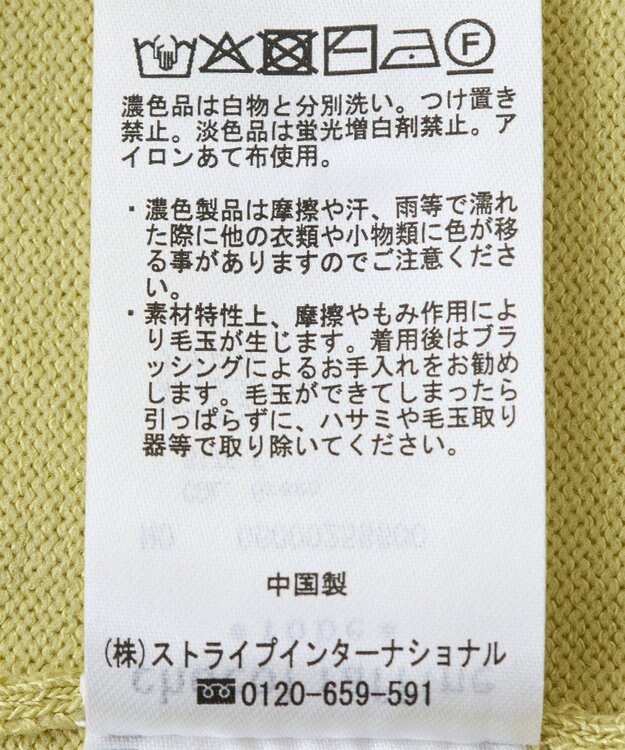 F
濃色品は白物と分別洗い。つけ置き
禁止。淡色品は蛍光増白剤禁止。ア
イロンあて布使用。
・濃色製品は摩擦や汗、雨等で濡れ
た際に他の衣類や小物類に色が移
る事がありますのでご注意くださ
い。
・素材特性上、摩擦やもみ作用によ
り毛玉が生じます。着用後はブラ
ッシングによるお手入れをお勧め
します。毛玉ができてしまったら
引っぱらずに、ハサミや毛玉取り
器等で取り除いてください。
中国製
(株)ストライプインターナショナル
0120-659-591